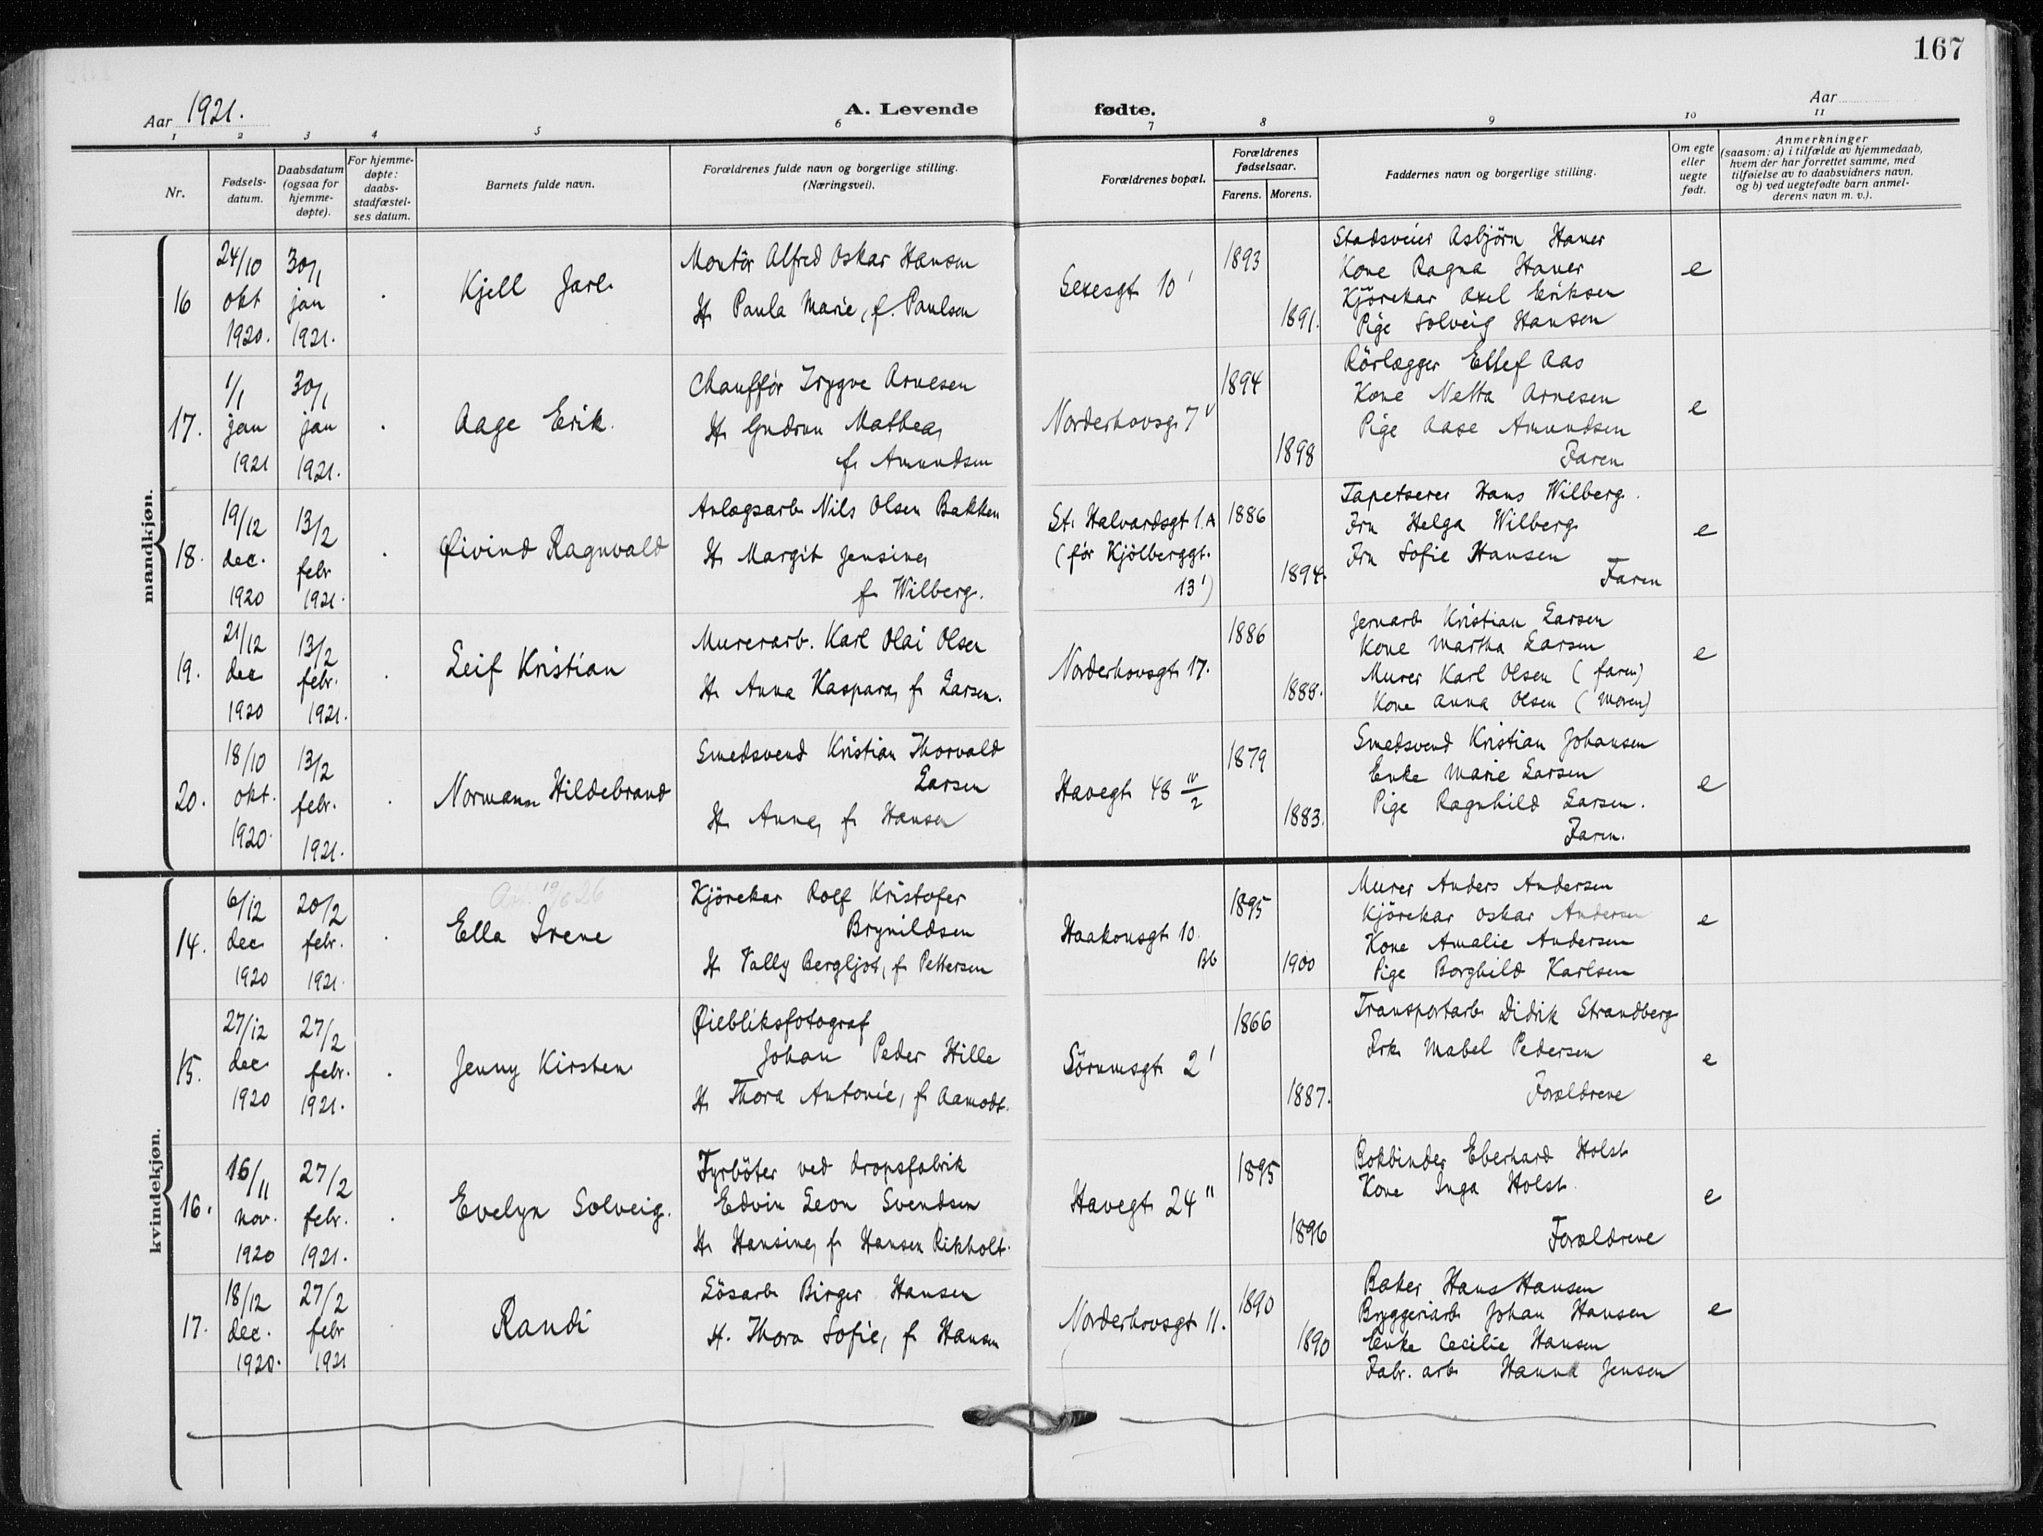 167
Aar 1921.
A. Levende fødte.
Aar
1 2 3 4 5 6 7 8 9 10 11
Nr.
Fødsels-
datum.
Daabsdatum
(ogsaa for
hjemme-
døpte).
For hjemme-
døpte:
daabs-
stadfæstel-
ses datum.
Barnets fulde navn.
Forældrenes fulde navn og borgerlige stilling.
(Næringsvei).
Forældrenes bopæl.
Forældrenes
fødselsaar.
Farens. Morens.
Faddernes navn og borgerlige stilling.
Om egte
eller
uegte
født.
Anmerkninger
(saasom: a) i tilfælde av hjemmedaab,
hvem der har forrettet samme, med
tilføielse av to daabsvidners navn,
og b) ved uegtefødte barn anmel-
derens navn m. v.).
mandkjøn.
16
24/10
okt
1920.
30/1
jan
1921.
Kjell Jarl
Montør Alfred Oskar Hansen
H. Paula Marie, f. Paulsen
Sexesgt 10 I
1893
1891.
Stadsveier Asbjörn Haner
Kone Ragna Haner
Kjörekar Axel Eriksen
Pige Solveig Hansen
e
17.
1/1
jan
1921
30/1
jan
1921.
Aage Erik.
Chauffør Trygve Arnesen
H. Gudrun Mathea,
f. Amundsen
Norderhovsg. 7 V
1894
1898
Rörlægger Ellef Aas
Kone Netta Arnesen
Pige Aase Amundsen
Faren
e
18.
19/12
dec.
1920
13/2
febr
1921.
Øivind Ragnvald
Anlægsarb. Nils Olsen Bakken
H. Margit Jensine,
f. Wilberg.
St. Halvardsgt 1. A
(før Kjölberggt.
13 I)
1886
1894.
Tapetserer Hans Wilberg.
Fru Helga Wilberg
Fru Sofie Hansen
Faren
e
19.
21/12
dec
1920
13/2
febr.
1921.
Leif Kristian
Murerarb. Karl Olai Olsen
H. Anna Kaspara, f. Larsen.
Norderhovsgt. 17.
1886
1888.
Jernarb Kristian Larsen
Kone Martha Larsen
Murer Karl Olsen (faren)
Kone Anna Olsen (moren)
e
20.
18/10
okt.
1920.
13/2
febr.
1921.
Normann Hildebrand
Smedsvend Kristian Thorvald
Larsen
H. Anne, f. Hansen
Havegt. 48 IV/2
1879
1883.
Smedsvend Kristian Johansen
Enke Marie Larsen
Pige Ragnhild Larsen.
Faren.
e
kvindekjøn.
14.
6/12
dec
1920
20/2
febr.
1921.
Ella Irene
Kjörekar Rolf Kristofer
Brynildsen
H. Vally Bergljot, f. Pettersen
Haakonsgt 10.
Bb
1895
1900
Murer Anders Andersen
Kjörekar Oskar Andersen
Kone Amalie Andersen
Pige Borghild Karlsen
e
15.
27/12
dec
1920
27/2
febr.
1921.
Jenny Kirsten
Øiebliksfotograf
Johan Peder Hille
H. Thora Antonie, f. Aamodt.
Sörumsgt. 2 I
1866
1887.
Transportarb. Didrik Strandberg
Frk. Mabel Pedersen
Forældrene
e
16.
16/11
nov.
1920
27/2
febr.
1921.
Evelyn Solveig.
Fyrböter ved dropsfabrik
Edvin Leon Svendsen
H. Hansine, f. Hansen Rikholt.
Havegt. 24 II
1895
1896
Bokbinder Eberhard Holst
Kone Inga Holst.
Forældrene
e
17.
18/12
dec.
1920.
27/2
febr
1921
Randi
Lösarb. Birger Hansen
H. Thora Sofie, f. Hansen
Norderhovsgt. 11.
1890
1890
Baker Hans Hansen
Bryggeriarb. Johan Hansen
Enke Cecilie Hansen
Fabr. arb. Hanna Jensen
e